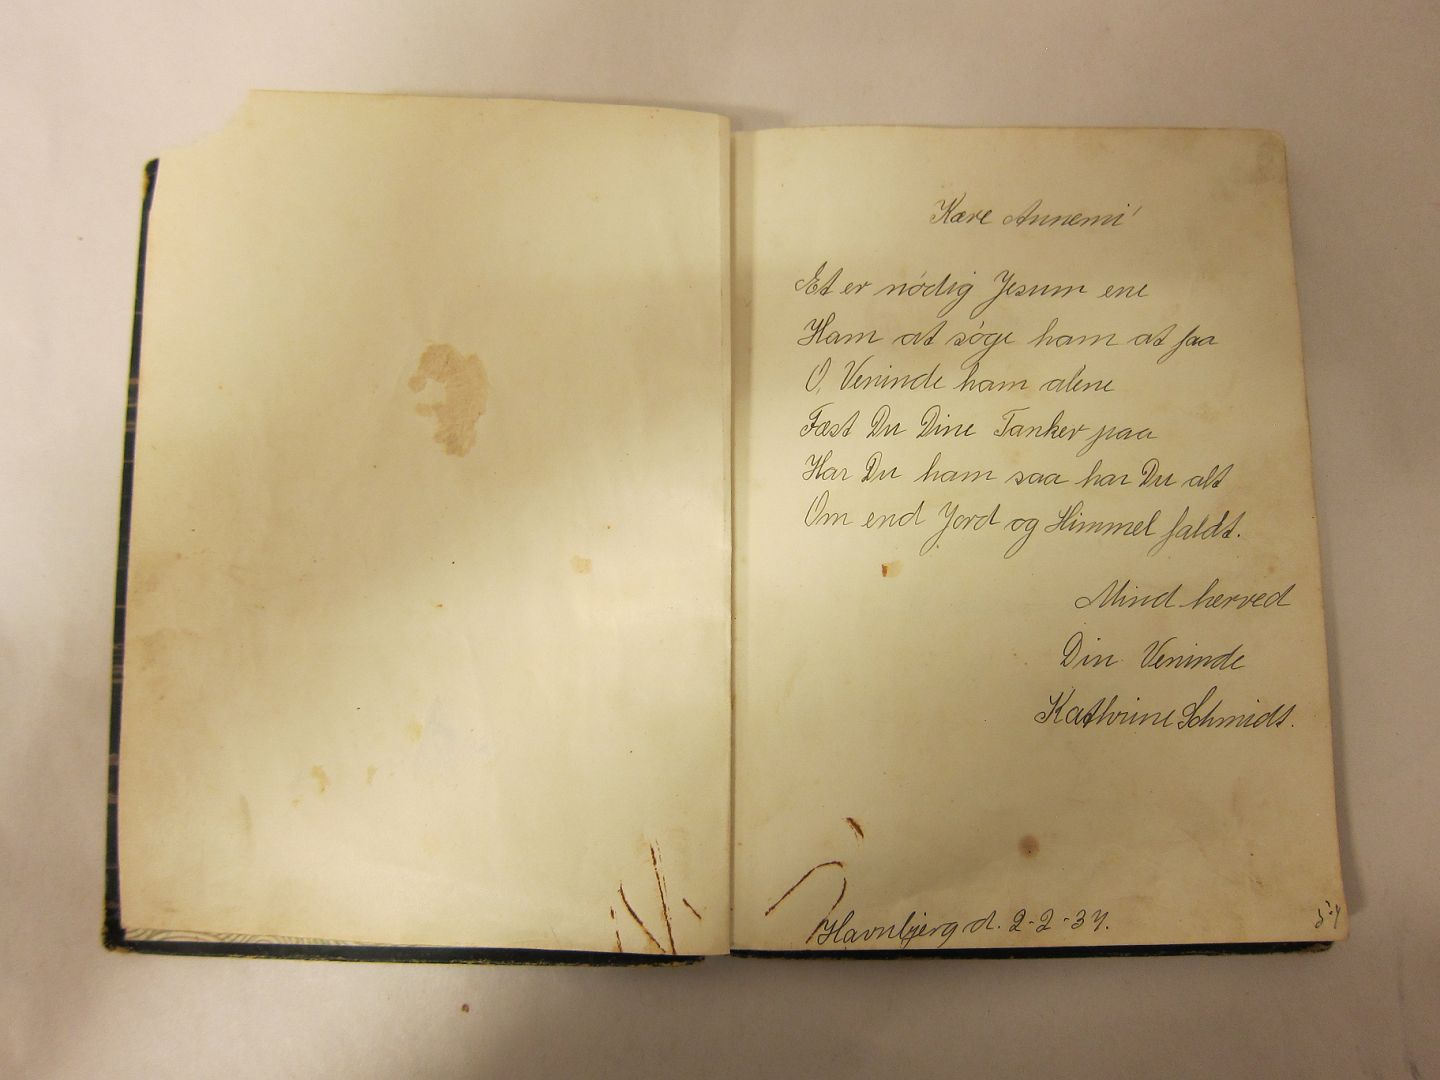 Kære Annemi'
Et er nódig Jesum ene
Ham at sóge ham at faa
O, Veninde ham alene
Fæst Du Dine Tanker paa
Har Du ham saa har Du alt
Om end Jord og Himmel faldt.
Mind herved
Din Veninde
Kathrine Schmidt.
Havnbjerg d. 2-2-37.